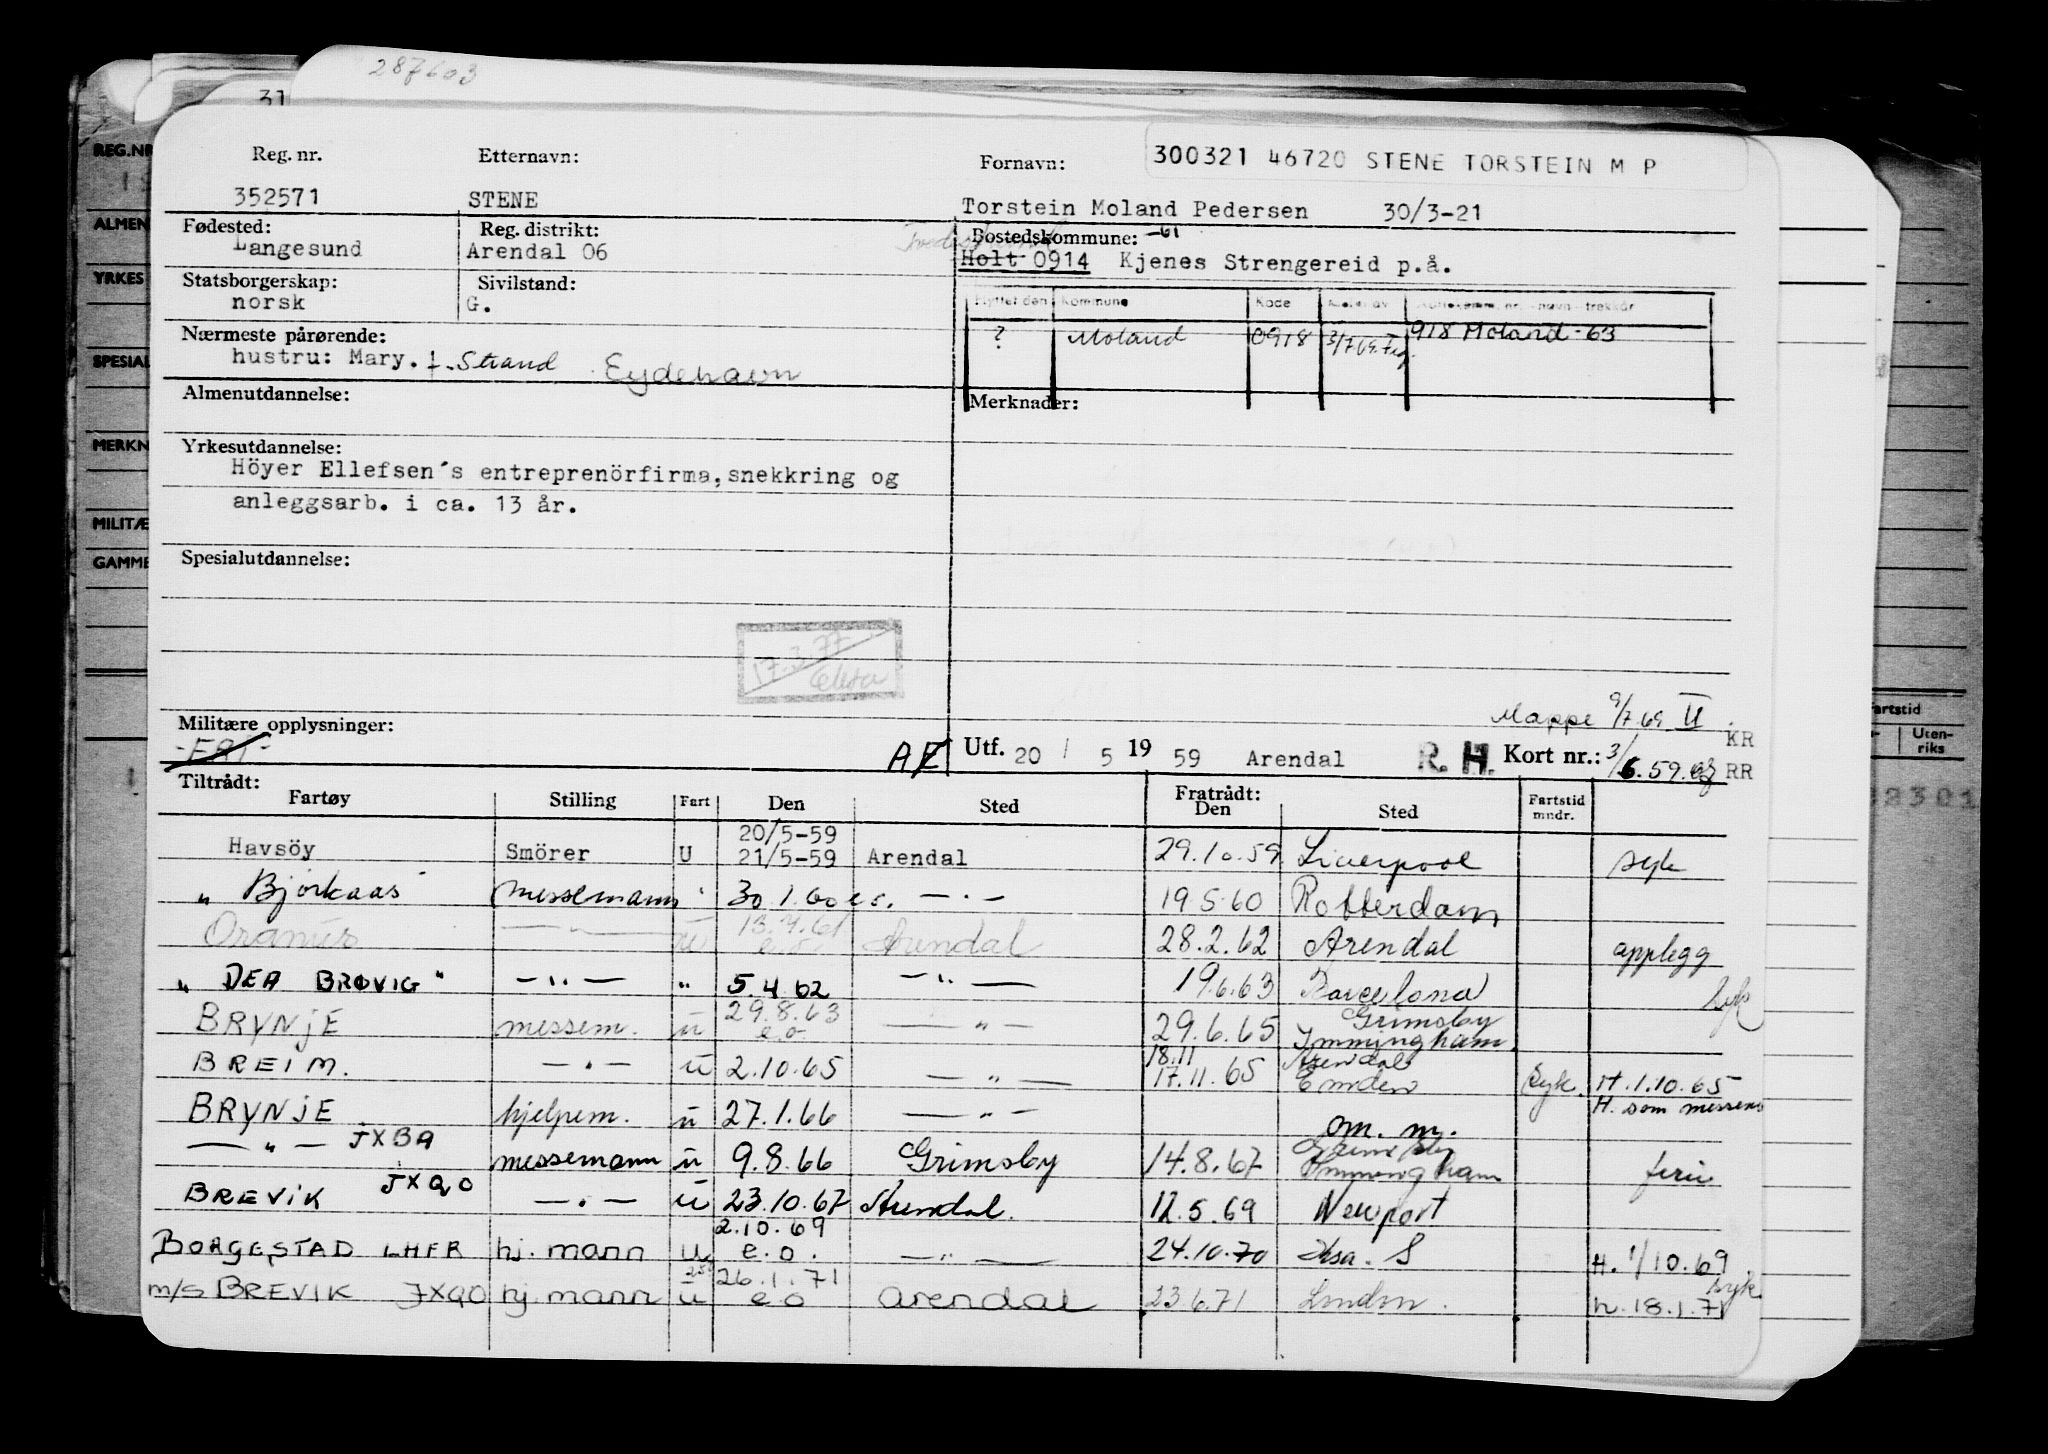 287603
31
REG.NR
ALMEN
YRKES
SPESIAL
MERKN
MILITÆ
GAMME
Reg. nr. Etternavn: Fornavn: 300321 46720 STENE TORSTEIN M P
352571 STENE Torstein Moland Pedersen 30/3-21
Fødested: Reg. distrikt: Bostedskommune: -61
Langesund Arendal 06 Holt 0914 Kjenes Strengereid p.å.
Statsborgerskap: Sivilstand:
norsk G.
Flyttet den Kommune Kode
? Moland 0918 3/7 69 918 Moland-63
Nærmeste pårørende:
hustru: Mary. f. Strand Eydehavn
Almenutdannelse: Merknader:
Yrkesutdannelse:
Höyer Ellefsen's entreprenörfirma, snekkring og
anleggsarb. i ca. 13 år.
Spesialutdannelse:
17.3.77
Mappe 9/7 69 II
Militære opplysninger:
-FAT- AF Utf. 20 / 5 19 59 Arendal R. H. Kort nr.: 3/6.59. KR RR
artstid
Uten-
riks
Tiltrådt: Fratrådt:
Fartøy Stilling Fart Den Sted Den Sted Fartstid mndr.
Havsöy Smörer U 20/5-59 21/5-59 Arendal 29.10.59 Liverpool syk
" Bjørkaas " messemann " 30.1.60 e.o. — " — 19.5.60 Rotterdam
Oranus — " — u 13.4.61 e.o. Arendal 28.2.62 Arendal opplegg
" DEA BRØVIG " — " — " 5.4.62 — " — 19.6.63 Barcelona syk
BRYNJE messem. u 29.8.63 e.o. — " — 29.6.65 Grimsby Immingham
BREIM. — " — u 2.10.65 — " — 18.11 17.11.65 Arendal Emden Syk. H. 1.10.65
BRYNJE hjelpem. u 27.1.66 — " — om. m. H. som messem
— " — JXBA messemann u 9.8.66 Grimsby 14.8.67 Grimsby Immingham ferie
BREVIK JXQO — " — u 23.10.67 Arendal. 12.5.69 Newport
BORGESTAD LHFR hj. mann u 2.10.69 e.o. — " — 24.10.70 H. 1/10.69
m/s BREVIK JXQO hj. mann u 26.1.71 e o Arendal 23.6.71 London. syk h. 18.1.71